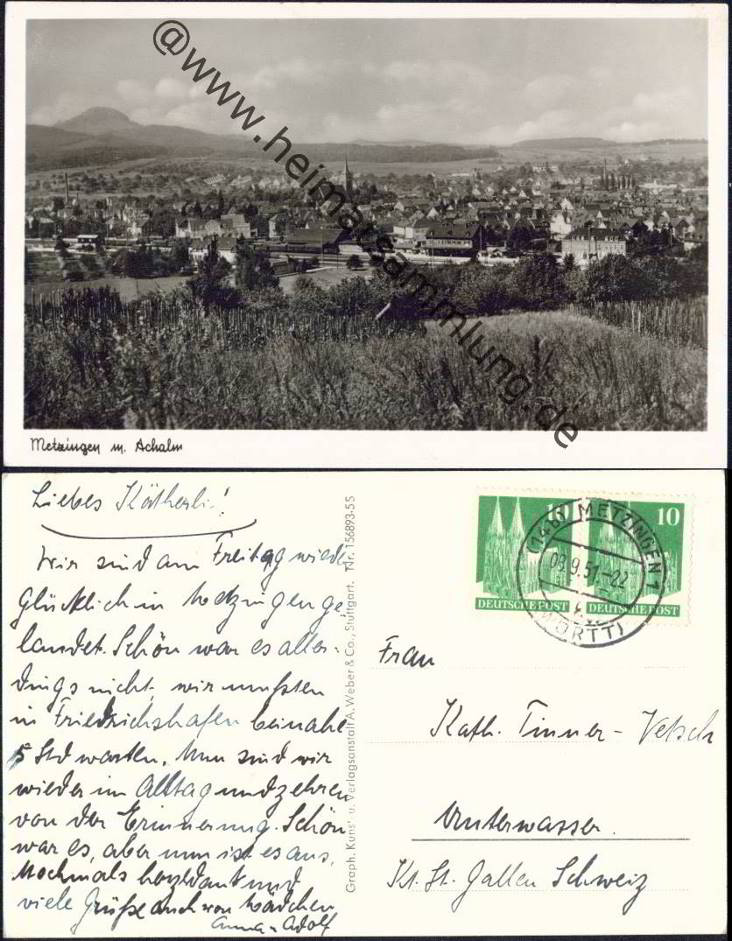 @www.heimatsammlung.de
Metzingen m. Achalm
Liebes Kätherli!
Wir sind am Freitag wieder
glücklich in Metzingen ge-
landet. Schön war es aller-
dings nicht, wir mußten
in Friedrichshafen beinahe
5 Std warten. Nun sind wir
wieder im Alltag und zehren
von der Erinnerung. Schön
war es, aber nun ist es aus.
Nochmals herzl dank und
viele Grüße auch von Mädchen
Anna u Adolf
Graph. Kunst- u. Verlagsanstalt A. Weber & Co., Stuttgart. Nr. 156893-5S
10 10
DEUTSCHE POST DEUTSCHE POST
(14b) METZINGEN 1
09.9.51.-22
(WÜRTT)
Frau
Kath. Tinner-Vetsch
Unterwasser.
Kt. St. Gallen Schweiz